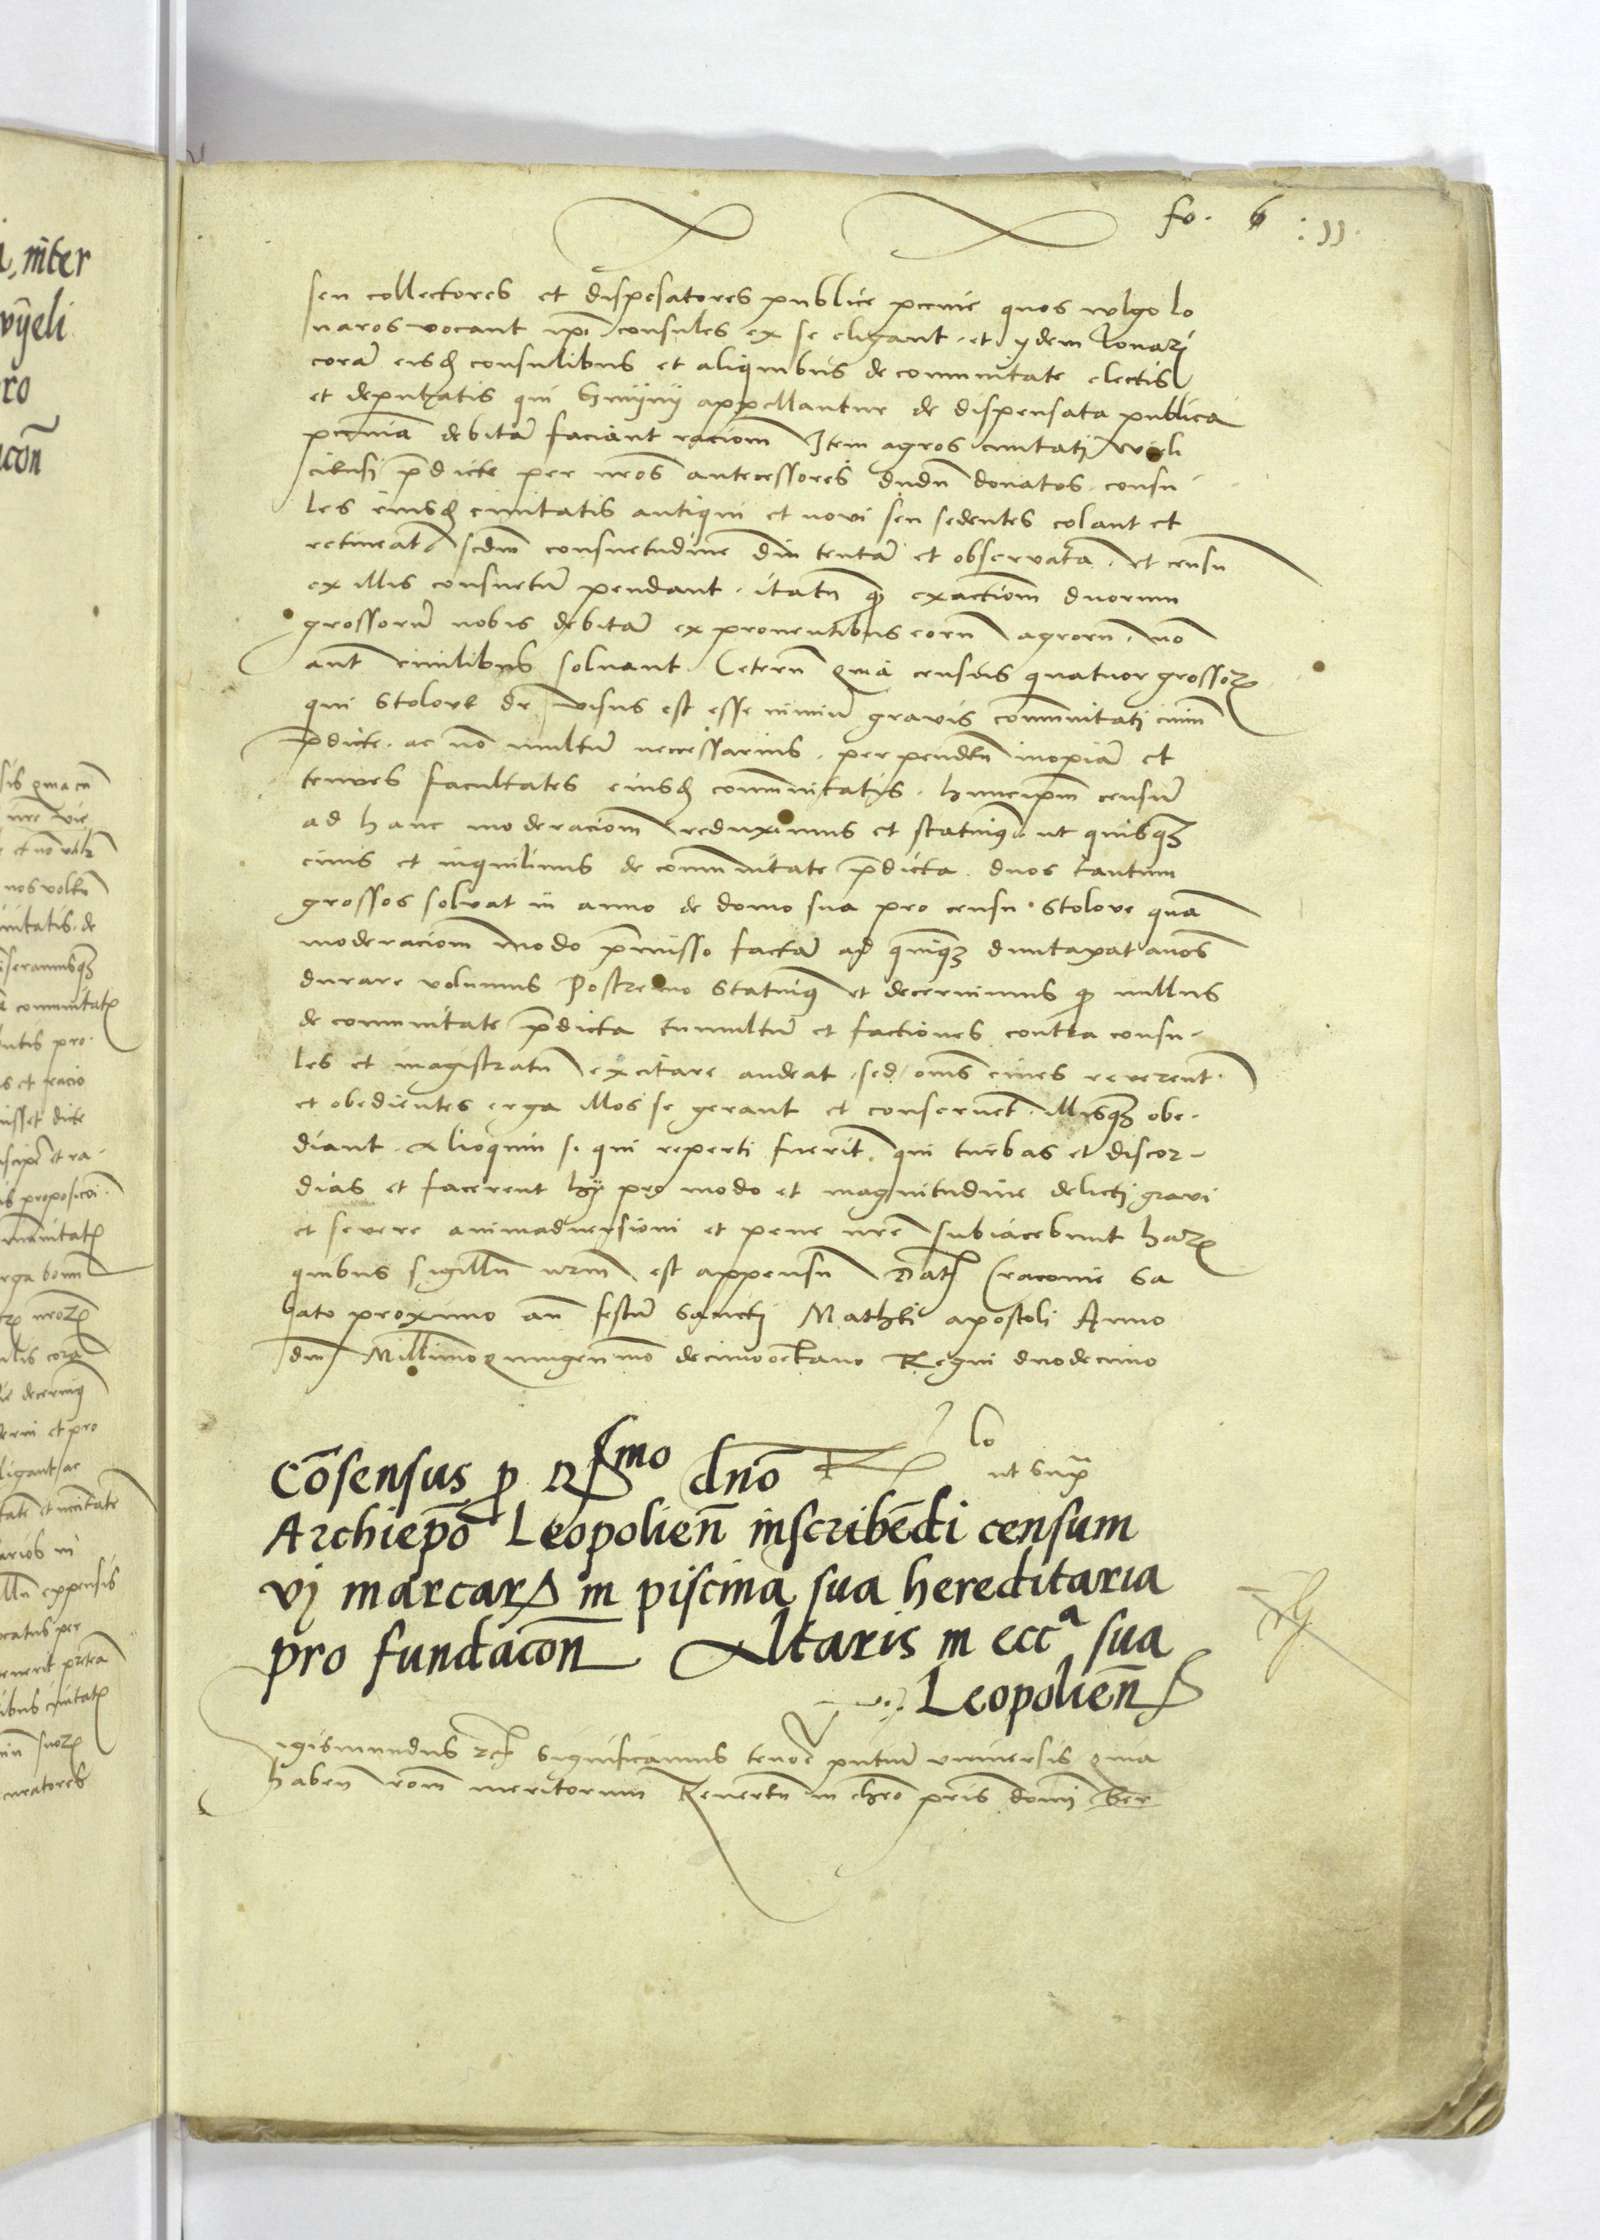 fo. 6 : 11.
seu collectores et dispēsatores publice pecunie quos vulgo lo
naros vocant ipsi consules ex se eligant. et ydem Lonari
corā eisdē consulibus et aliquibus de communitate electis
et deputatis qui appellantur de dispensata publica
pecunia debitā faciant raciom̄ Item agros civitati Vieli
cien̄ p̄dicte per nr̄os antecessores dudū donatos consu
les eiusdē civitatis antiqui et novi seu sedentes colant et
retineant scdm̄ consuetudinē diu tentā et observatā. et censū
ex illis consuetū pendant. itatn̄ qd exactiom̄ duorum
grossorū nobis debitā ex proventibus eorū agrorū. no
aut̄ civilibus solvant. Ceterū quia census quatuor grossorꝫ
qui Stolove dr̄ visus est esse nimiū gravis communitati
p̄dicte. ac nō multū necessarius. perpenden̄ inopiā et
tenues facultates eiusdē communitatis. huncipm̄ censū
ad hanc moderaciom̄ reduximus et statuimus. ut quisqꝫ
civis et inquilinus de communitate p̄dicta. duos tantum
grossos solvat in anno de domo sua pro censu Stolove quā
moderaciom̄ modo p̄misso factā ad quinqꝫ duntaxat annos
durare volumus Postremo Statuimus et decernimus qd nullus
de communitate p̄dicta tumultū et factiones contra consu-
les et magistratū excitare audeat. sed om̄s cives reverent.
et obedientes erga illos se gerant et conservent. illisqꝫ obe-
diant. Alioquin si qui reperti fuerit. qui turbas et discor-
dias et facerent hij pro modo et magnitudine delicti gravi
et severe animadversioni et pene nr̄e subiacebunt harꝫ
quibus sigillū nrm̄ est appensū Dat Cracovie Sa
bato proximo an̄ festū Sancti Mathei apostoli Anno
dnī Millimo quingen̄mo decimooctavo Regni duodecimo
Cōsensus p R^smo dnō
lo
ut Supra
Archiepō Leopolien̄ inscribēdi censum
vj marcarꝝ in piscina sua hereditaria
pro fundacon̄ Altaris in ecc^a sua
Leopolien̄
Sigismundus ꝛc Significamus tenore p̄ntiū universis quia
haben̄ rōm̄ meritorum Reverēn̄ in chrō pr̄is domī Ber